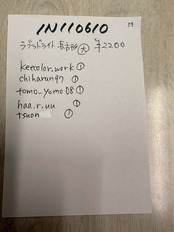 IN110610
ラブラドライト 長方形 大 ¥2200
keecolor.work ①
chiharun97 ①
tomo_yomo 08 ①
haa.r.uu ①
tsuon ①